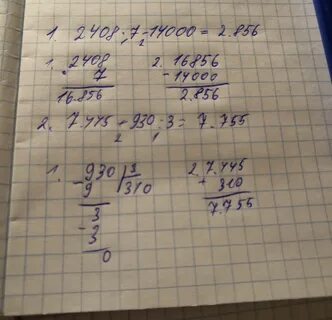 1. 2408 · 7 - 14000 = 2.856
1. 2408
· 7
16.856
2. 16856
- 14000
2.856
2. 7.445 + 930 : 3 = 7.755
1. 930 | 3
- 9 310
3
- 3
0
2. 7.445
+ 310
7.755